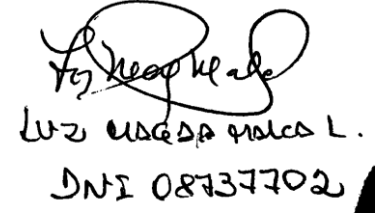 LUZ MAGDA MALCA L.
DNI 08737702